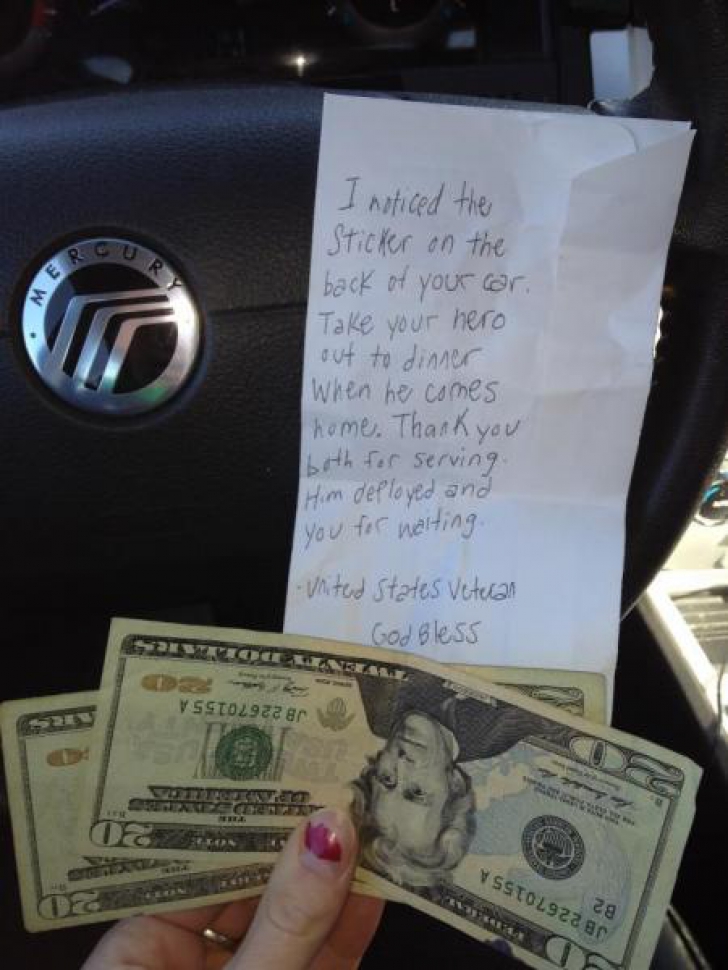 MERCURY
I noticed the
Sticker on the
back of your car.
Take your hero
out to dinner
When he comes
home. Thank you
both for serving.
Him deployed and
you for waiting.
- United States Veteran
God Bless
20
JB 22670155 A
THE
UNITED STATES
OF AMERICA
20
B2
JB 22670155 A
20
20
20